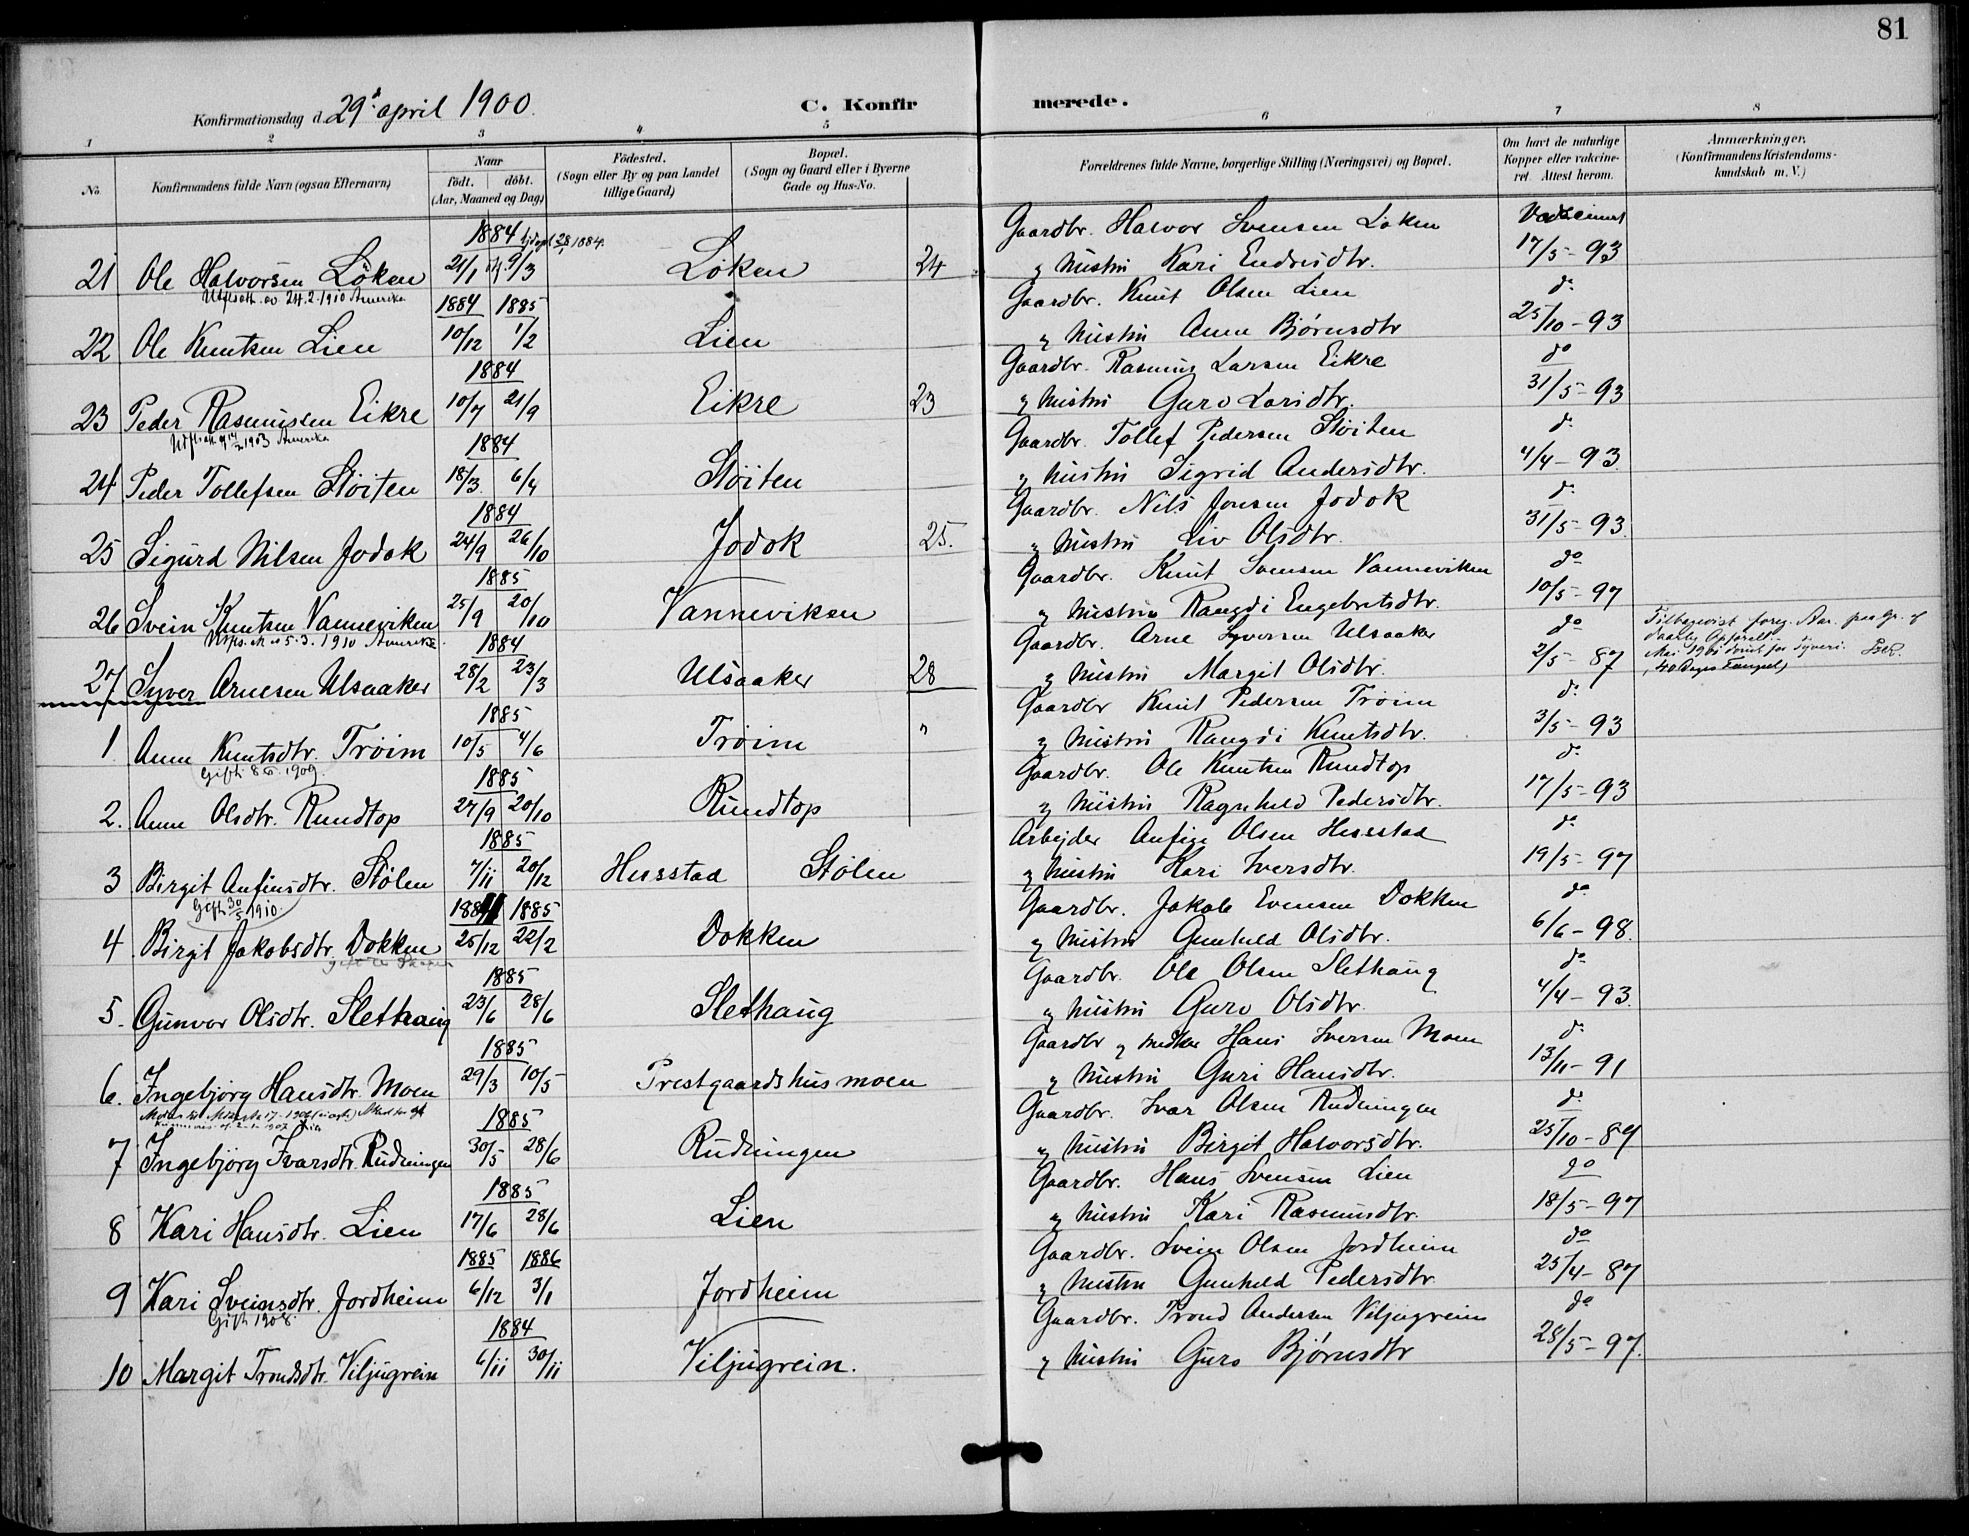 81
Konfirmationsdag d. 29. april 1900.
C. Konfirmerede.
1 2 3 4 5 6 7 8
No.
Konfirmandens fulde Navn (ogsaa Efternavn)
Naar
födt. döbt.
(Aar, Maaned og Dag)
Födested.
(Sogn eller By og paa Landet
tillige Gaard)
Bopæl.
(Sogn og Gaard eller i Byerne
Gade og Hus-No.
Forældrenes fulde Navne, borgerlige Stilling (Næringsvei) og Bopæl.
Om havt de naturlige
Kopper eller vakcine-
ret. Attest herom.
Anmærkninger,
(Konfirmandens Kristendoms-
kundskab m. V.)
1884 28/ 1884. Gaardbr. Halvor Svensen Løken
21 Ole Halvorsen Løken 21/1 9/3 Løken 24 og hustru Kari Endresdtr. 17/5-93
24.2.1910 Amerika
1884 1885 Gaardbr. Knut Olsen Lien do
22 Ole Knutsen Lien 10/12 1/2 Lien og hustru Anne Bjørnsdtr 25/10-93
1884 Gaardbr. Rasmus Larsen Eikre do
23 Peder Rasmussen Eikre 10/7 21/9 Eikre 23 og hustru Guro Larsdtr. 31/5-93
1903 Amerika
1884 Gaardbr. Tollef Pedersen Støiten do
24 Peder Tollefsen Støiten 18/3 6/4 Støiten og hustru Sigrid Andersdtr. 4/4-93
1884 Gaardbr. Nils Jonsen Jodok do
25 Sigurd Nilsen Jodok 24/9 26/10 Jodok 25. og hustru Liv Olsdtr. 31/5-93
1885 Gaardbr. Knut Svensen Vanneviken do
26 Svein Knutsen Vanneviken 25/9 20/10 Vanneviken og hustru Rangdi Engebretsdtr. 10/5-97
5.3.1910 Amerika
1884 Gaardbr. Arne Syversen Ulsaaker do Tilbagevist foreg. Aar. paa gr. af
daarlig Opførsel.
27 Syver Arnesen Ulsaaker 28/2 23/3 Ulsaaker 28 og hustru Margit Olsdtr. 2/5-87 Mai 1901 dømt for Tyveri.
(40 Dages Fængsel)
1885 Gaardbr Knut Pedersen Trøim do
1 Anne Knutsdtr. Trøim 10/5 4/6 Trøim " og hustru Rangdi Knutsdtr. 3/5-93
Gift 1909.
1885 Gaardbr. Ole Knutsen Rundtop do
2. Anne Olsdtr. Rundtop 27/9 20/10 Rundtop og hustru Ragnhild Pedersdtr. 17/5-93
1885 Arbejder Anfin Olsen Hesstad do
3 Birgit Anfinsdtr. Stølen 7/11 20/12 Hesstad Stølen og hustru Kari Iversdtr. 19/5-97
Gift 30/5 1910.
1884 1885 Gaardbr. Jakob Evensen Dokken do
4 Birgit Jakobsdtr. Dokken 25/12 22/2 Dokken og hustru Gunhild Olsdtr. 6/6-98.
1885 Gaardbr. Ole Olsen Slethaug do
5. Gunvor Olsdtr. Slethaug 23/6 28/6 Slethaug og hustru Guro Olsdtr. 4/4-93.
1885 Gaardbr og Hans Iversen Moen do
6. Ingebjørg Hansdtr. Moen 29/3 10/5 Prestgaardshusmoen og hustru Guri Hansdtr. 13/11-91
1885 Gaardbr. Ivar Olsen Rudningen do
7 Ingebjørg Ivarsdtr. Rudningen 30/5 28/6 Rudningen og hustru Birgit Halvorsdtr. 25/10-89
1885 Gaardbr. Hans Svensen Lien do
8 Kari Hansdtr. Lien 17/6 28/6 Lien og hustru Kari Rasmusdtr. 18/5-97
1885 1886 Gaardbr. Svein Olsen Jordheim do
9 Kari Sveinsdtr. Jordheim 6/12 3/1 Jordheim og hustru Gunhild Pedersdtr 25/4-87
Gift 1908.
1884 Gaardbr. Trond Andersen Viljugrein do
10 Margit Trondsdtr. Viljugrein 6/11 30/11 Viljugrein. og hustru Guro Bjørnsdtr 28/5-97.